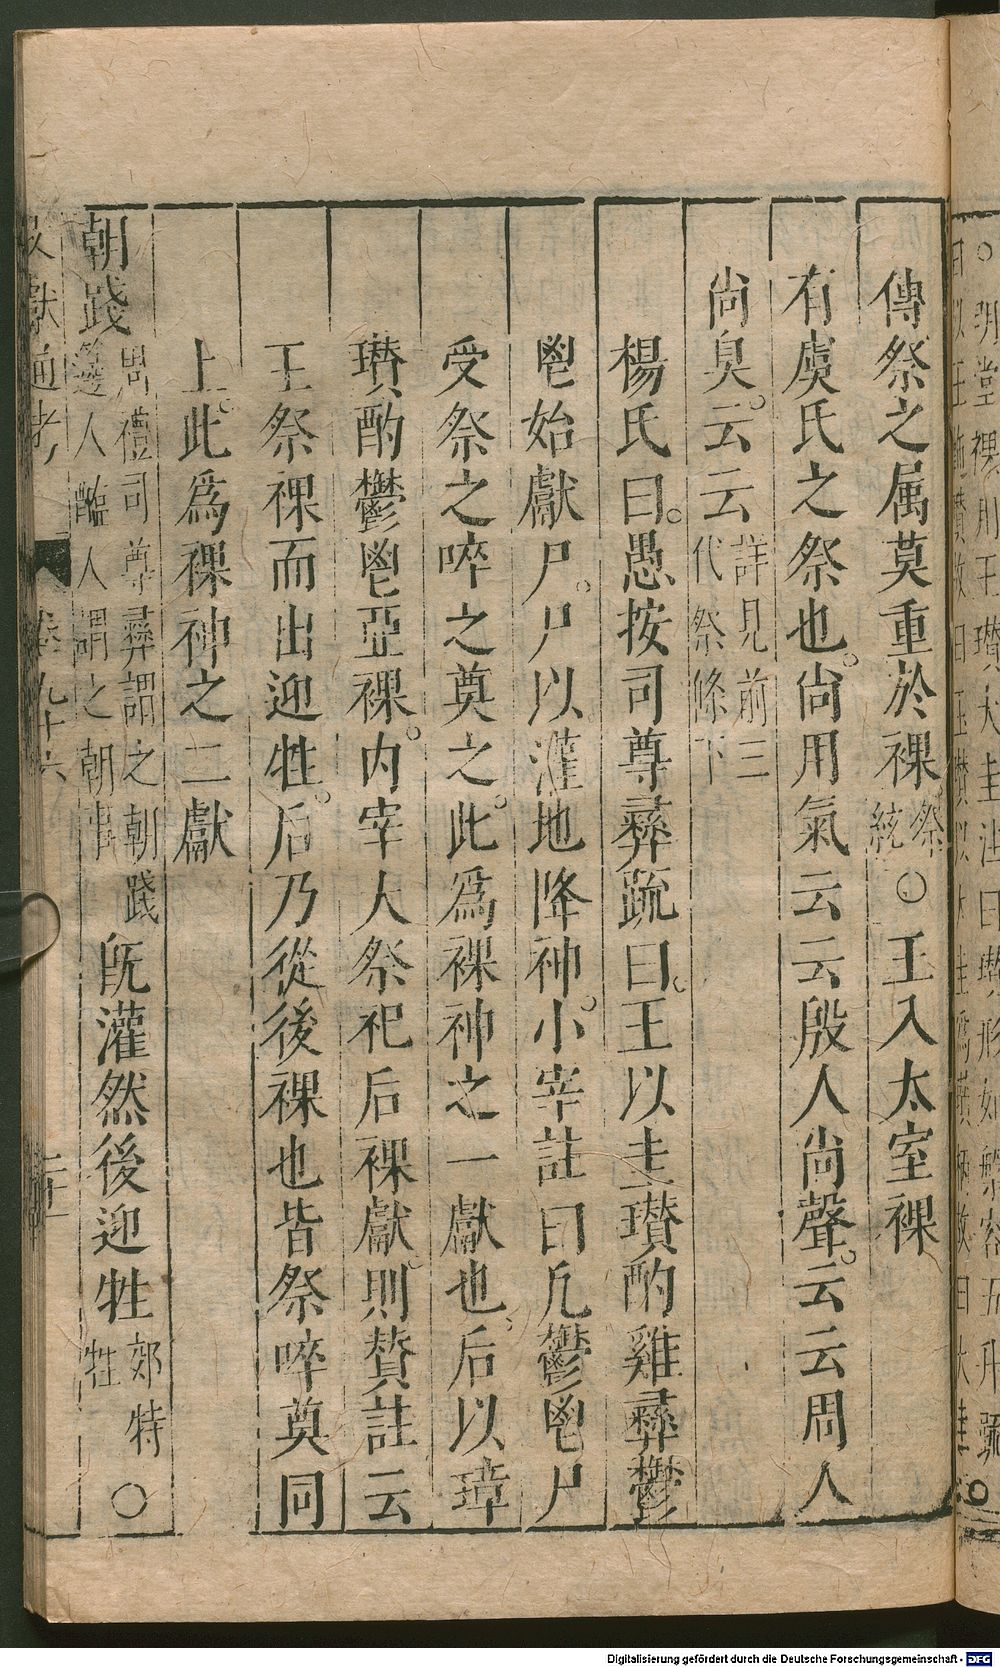 傳祭之属莫重於祼祭統○王入太室祼
有虞氏之祭也。尙用氣云云殷人尙聲。云云周人
尙臭。云云詳見前三代祭條下
楊氏曰。愚按司尊彛疏曰。王以圭瓉酌雞彛鬱
鬯始獻尸。尸以灌地降神。小宰註曰凡鬱鬯尸
受祭之啐之奠之。此爲祼神之一獻也。后以璋
瓉酌鬱鬯亞祼。内宰大祭祀后祼獻。則賛註云
王祭祼而出迎牲。后乃從後祼也皆祭啐奠同
上。此爲祼神之二獻
朝踐周禮司尊彛謂之朝踐籩人醢人謂之朝事旣灌然後迎牲郊特牲○
獻通考
卷九十六
Digitalisierung gefördert durch die Deutsche Forschungsgemeinschaft - DFG